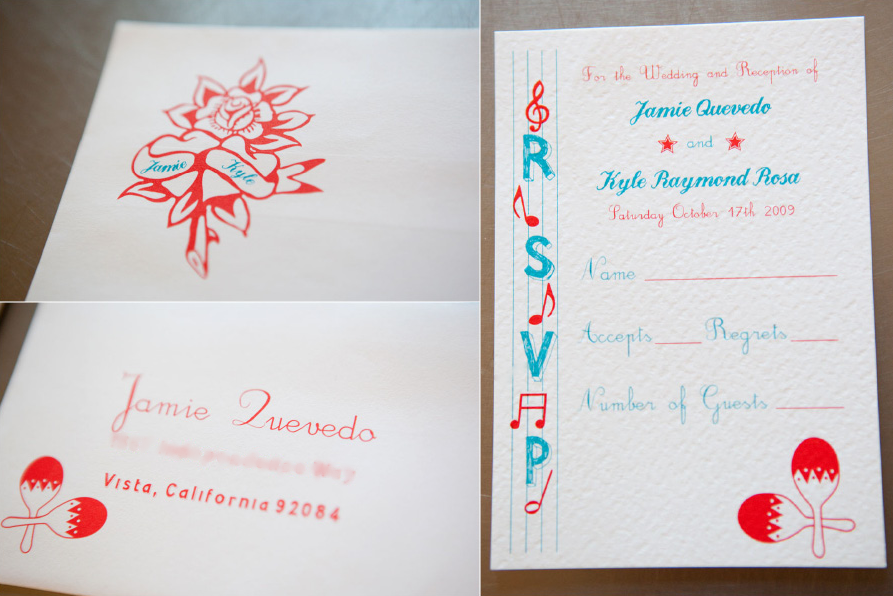 Jamie Kyle
Jamie Quevedo
Vista, California 92084
RSVP
For the Wedding and Reception of
Jamie Quevedo
and
Kyle Raymond Rosa
Saturday October 17th 2009
Name
Accepts Regrets
Number of Guests